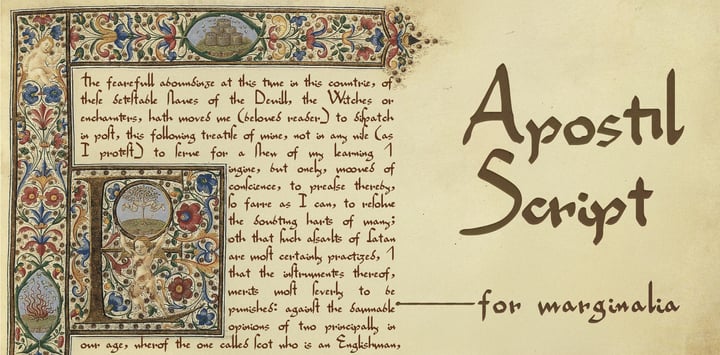 the fearefull aboundinge at this time in this countrie, of
theſe deteſtable ſlaves of the Devill, the Witches or
enchanters, hath moved me (beloved reader) to diſpatch
in poſt, this following treatiſe of mine, not in any wiſe (as
I proteſt) to ſerve for a ſhew of my learning ⁊
ingine, but onely, mooved of
conſcience, to preaſſe thereby,
ſo farre as I can, to reſolve
the doubting harts of many;
oth that ſuch aſſalts of Satan
are moſt certainly practized, ⁊
that the inſtruments thereof,
merits moſt ſeverly to be
puniſhed: againſt the damnable
opinions of two principally in
our age, wherof the one called Scot who is an Engliſhman,
Apostil
Script
for marginalia